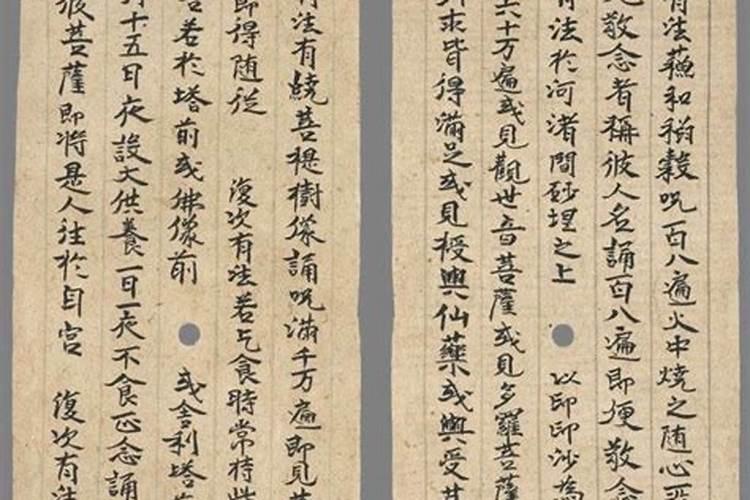 有法蘓和稻穀呪百八遍火中燒之随心
敬念者稱彼人名誦百八遍即便敬念
有法於河渚間砂埋之上 以印印沙為
六十万遍或見觀世音菩薩或見多羅菩薩
求皆得滿足或見授與仙藥或與受
有法有繞菩提樹像誦呪滿千万遍即見
即得随従 復次有法若乞食時常持此
若於塔前或佛像前 或舍利塔
十五日夜設大供養一日一夜不食正念誦
彼菩薩即將是人往於自宮 復次有法